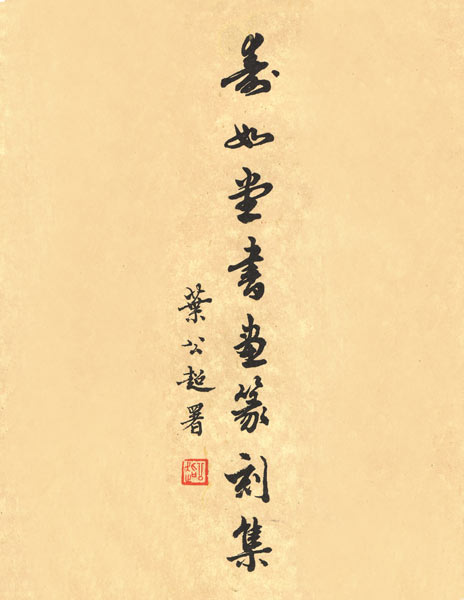 壽如堂書畫篆刻集
葉公超署